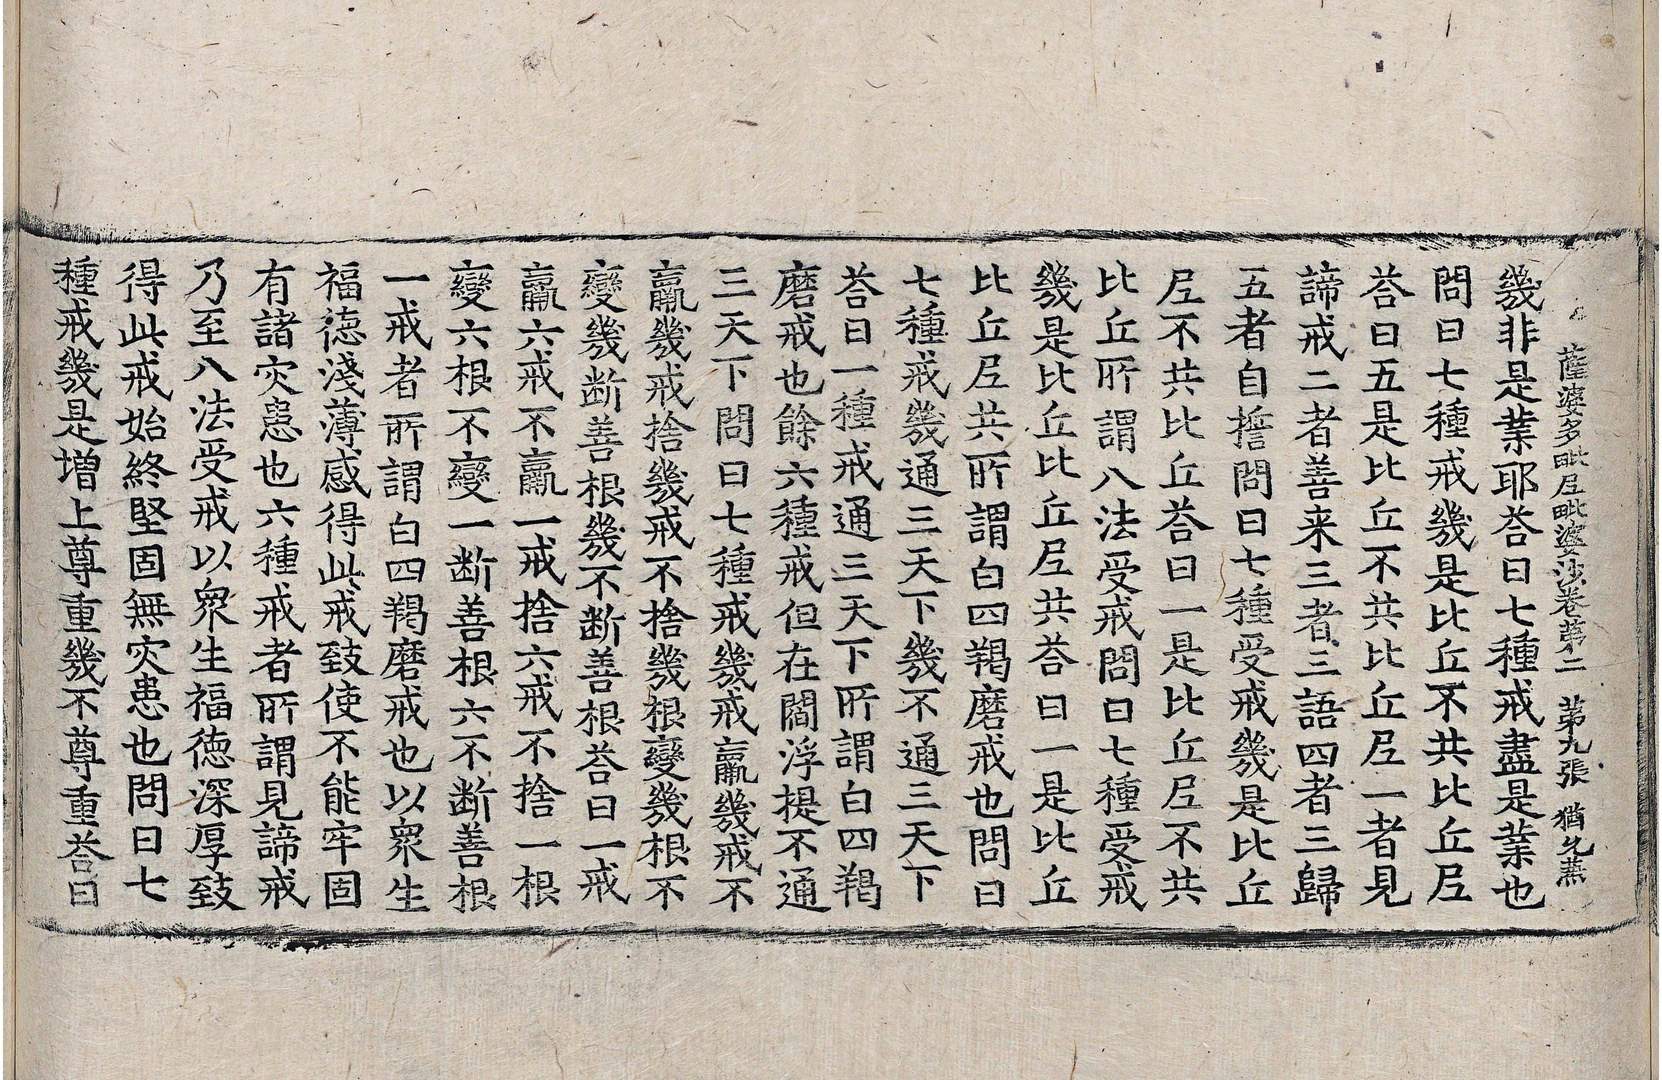 薩婆多毗尼毗婆沙卷苐二 苐九張 猶允燕
幾非是業耶荅曰七種戒盡是業也
問曰七種戒幾是比丘不共比丘尼
荅曰五是比丘不共比丘尼一者見
諦戒二者善来三者三語四者三歸
五者自誓問曰七種受戒幾是比丘
尼不共比丘荅曰一是比丘尼不共
比丘所謂八法受戒問曰七種受戒
幾是比丘比丘尼共荅曰一是比丘
比丘尼共所謂白四羯磨戒也問曰
七種戒幾通三天下幾不通三天下
荅曰一種戒通三天下所謂白四羯
磨戒也餘六種戒但在閻浮提不通
三天下問曰七種戒幾戒羸幾戒不
羸幾戒捨幾戒不捨幾根變幾根不
變幾断善根幾不断善根荅曰一戒
羸六戒不羸一戒捨六戒不捨一根
變六根不變一断善根六不断善根
一戒者所謂白四羯磨戒也以衆生
福德淺薄感得此戒致使不能牢固
有諸灾患也六種戒者所謂見諦戒
乃至八法受戒以衆生福德深厚致
得此戒始終堅固無灾患也問曰七
種戒幾是增上尊重幾不尊重荅曰